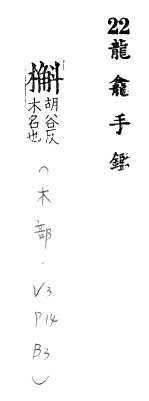 22 龍龕手鑑
槲 胡谷反
木名也
（木部．V3 P14 B3）